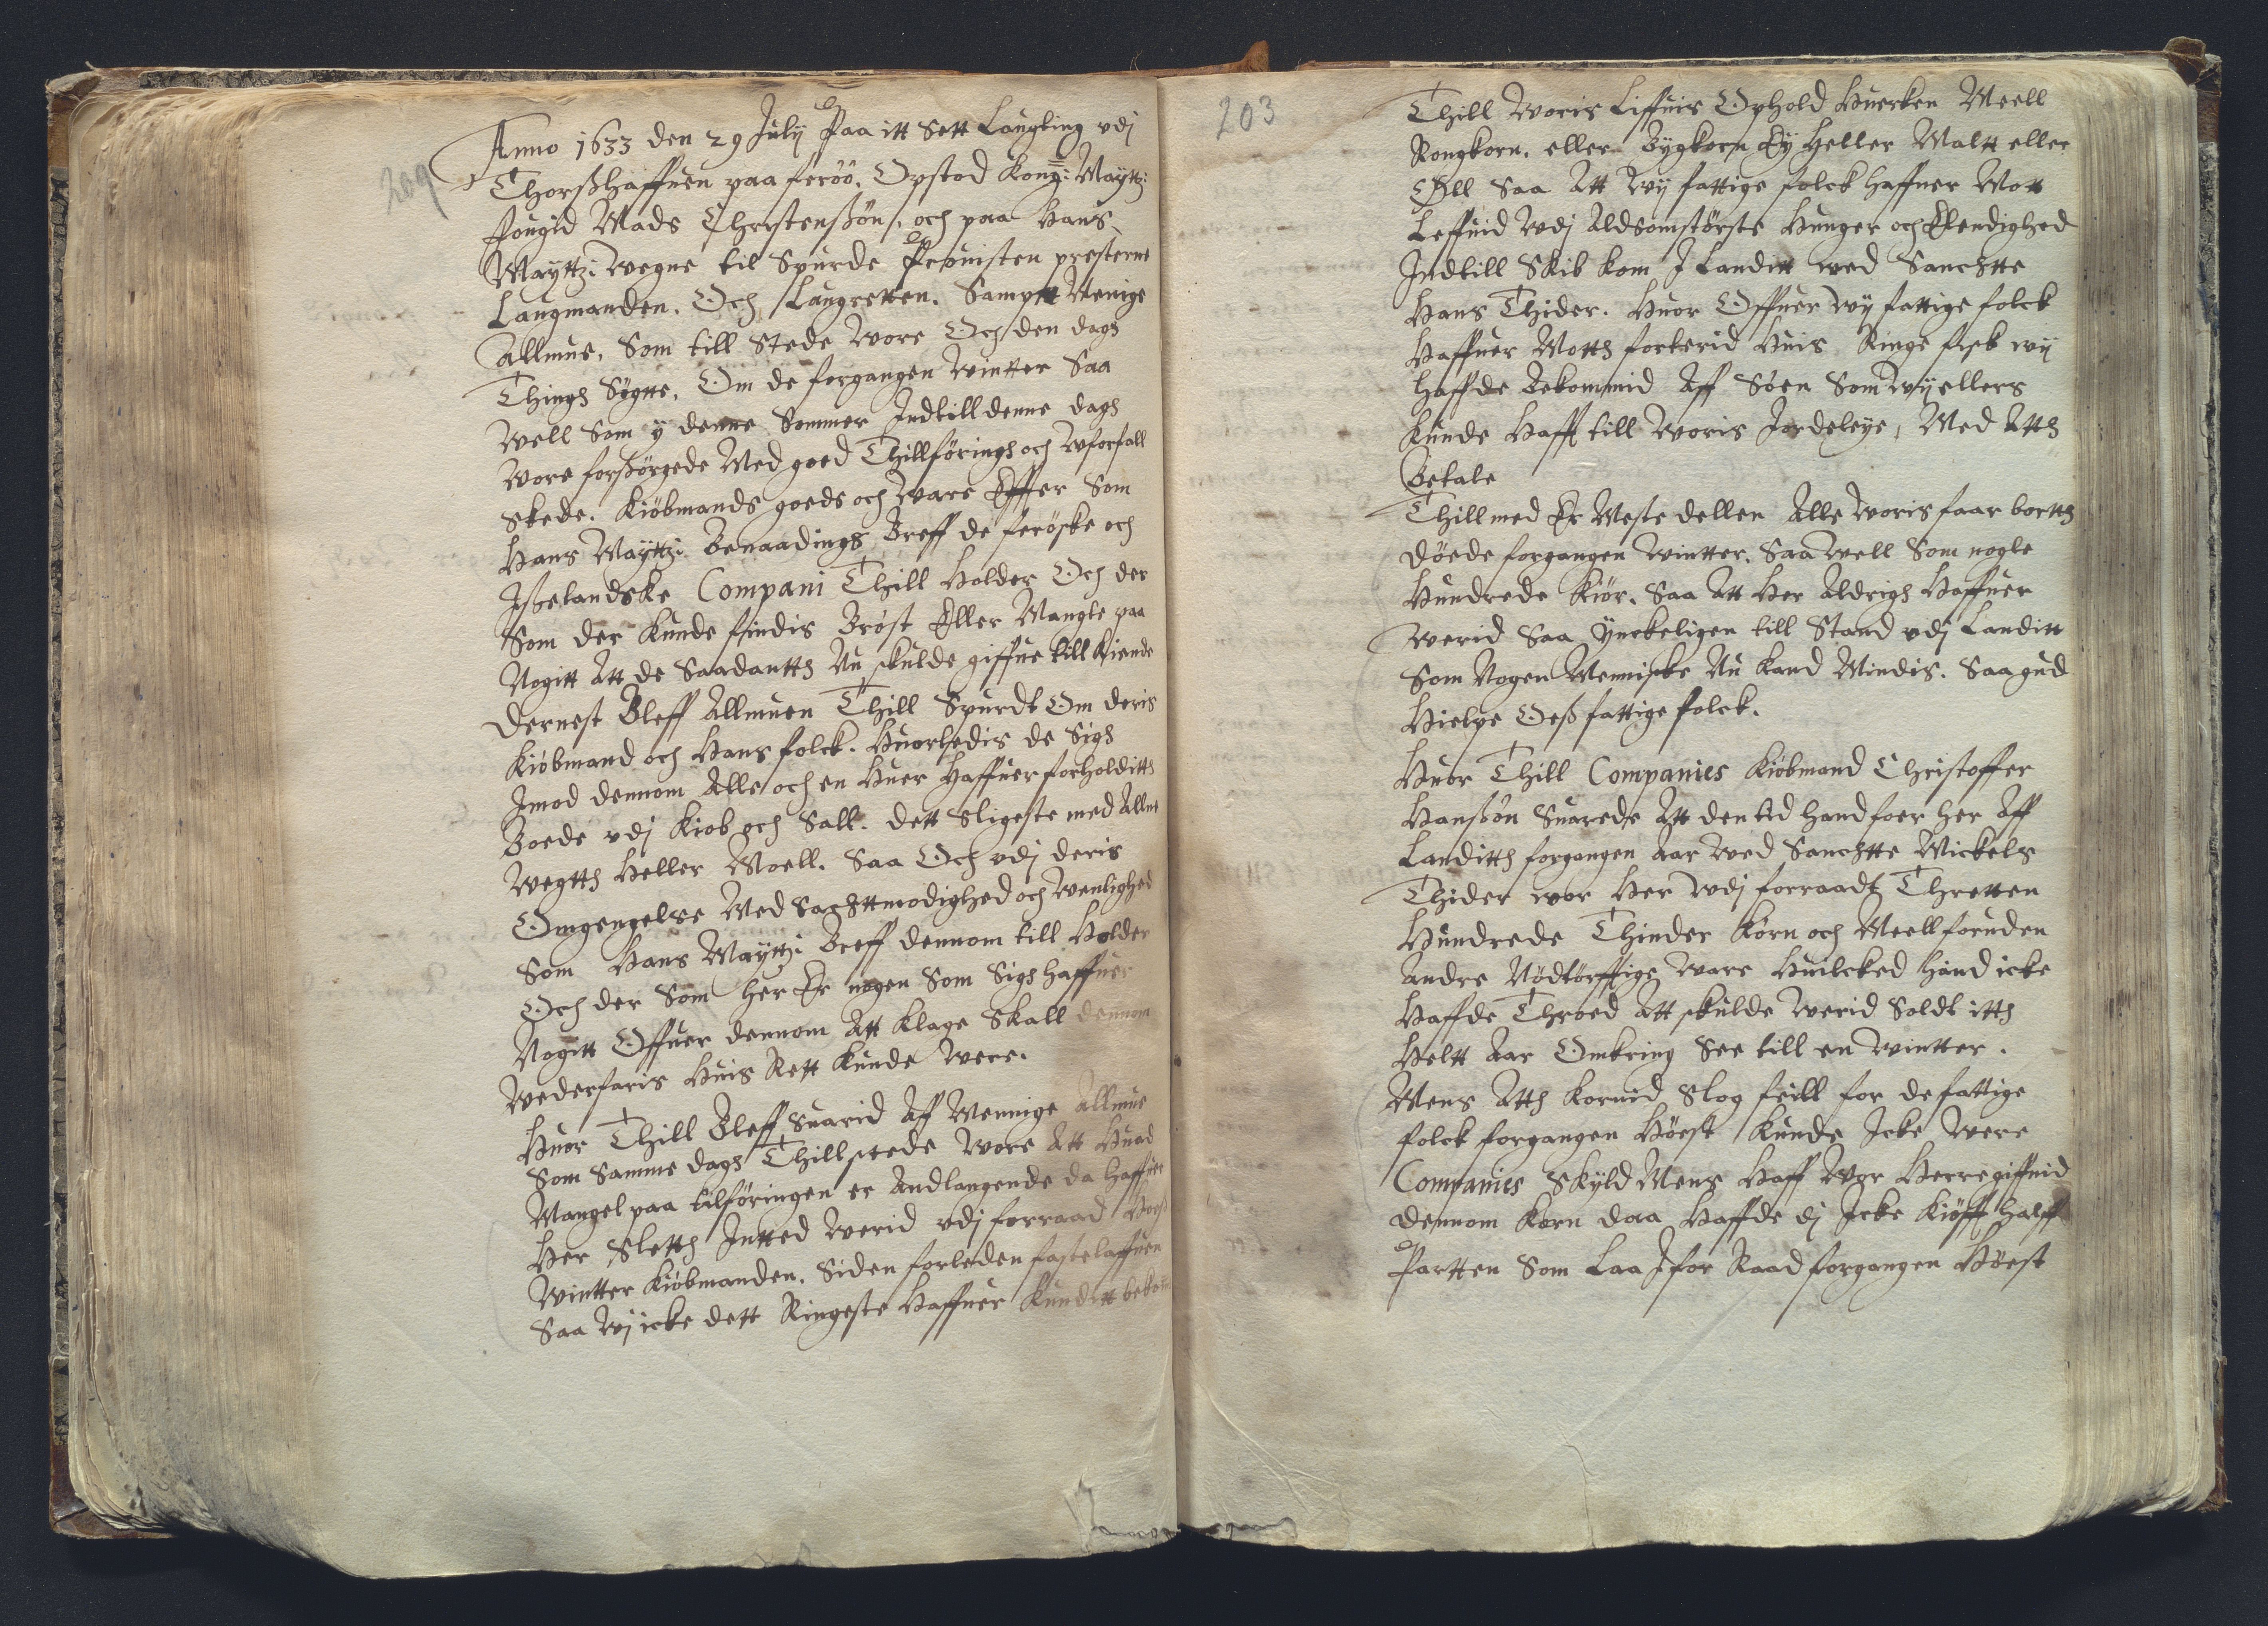 209
Anno 1633 den 29 Julij Paa itt Sett Laugting vdj
Thorßhaffuen paa feröö. Opstod Kong: Maÿttz:
fougid Mads Christenßön, och paa Hans
Maÿttz: wegne til Spurde Prouisten presterne
Laugmanden. Och Laugretten. Sampt Menige
Allmue. Som till Stede wore Och den dagh
Thingh Sögtte. Om de forgangen wintter Saa
well Som ÿ denne Sommer Indtill denne dagh
wore forßörgede Med goed Thillföringh och wforfall
skede. Kiöbmands goeds och ware Effter Som
Hans Maÿttz: Benaadings Breff de feröske och
Ißelandske Compani Thill Holder Och der
Som der Kunde findis Bröst Eller Mangle paa
Nogitt Att de Saadantth Nu skulde giffue till Kiende
Dernest Bleff Allmuen Thill Spurdt Om deris
Kiöbmand och Hans folck. Huorledis de Sigh
Imod dennom Alle och en Huer Haffuer forholditth
Boede vdj Kiöb och Sall. dett Sligeste med Allne
wegtth Heller Moell. Saa Och vdj deris
Omgengelse Med Sachttmodighed och wenlighed
Som Hans Maÿttz: Breff dennom till Holder
Och der Som her Er nogen Som Sigh haffuer
Nogitt Offuer dennom Att Klage Skall dennom
wederfaris Huis Rett Kunde were.
Huor Thill Bleff Suarid Aff Mennige Allmue
Som Samme dagh Thillstede wore Att Huad
Mangel paa tilföringen er Andlangende da haffuer
Her Sletth Intted werid vdj forraad Hoeß
wintter Kiöbmanden. Siden forleden fastelaffuen
Saa wj icke dett Ringeste Haffuer Kunditt bekom
203
Thill woris Liffuis Ophold Huerken Meell
Rongkorn. eller Bÿgkorn Eÿ Heller Maltt eller
Öll Saa Att wÿ fattige folck haffuer Mott
Leffuid wdj Aldsomstörste Hunger och Elendighed
Indtill Skib kom I Landitt wed Sanchtte
Hans Thider. Huor Offuer wÿ fattige folck
Haffuer Motth forterid Huis Ringe fisk wij
haffde Bekommid Aff Söen Som wÿ ellers
Kunde Hafft till woris Jordeleÿe, Med Atth
Betale
Thill med Er Meste dellen Alle woris faar bortth
döede forgangen wintter. Saa well Som nogle
Hundrede Kiör. Saa Att Her Aldrigh Haffuer
werid Saa Ÿnckeligen till Stand vdj Landitt
Som Nogen Menniske Nu Kand Mindis. Saa gud
Hielpe Oeß fattige folck.
Huor Thill Companies Kiöbmand Christoffer
Hanßön Suarede Att den tid hand foer her Aff
Landitth forgangen aar wed Sanchtte Mickels
Thider wor Her wdj forraadt Thretten
Hundrede Thinder Korn och Meell foruden
Andre Nödtörfftige ware Huilcked hand icke
Haffde Throed Att skulde werid Soldt itth
Heltt Aar Omkring See till en wintter.
Mens Atth Kornid Slog feill for de fattige
folck forgangen Höest Kunde Icke were
Companies Skÿld Mens Haff wor Herre giffuid
dennom Korn daa Haffde dj Icke Kiöfft halff
Partten Som Laa I for Raad forgangen Höest